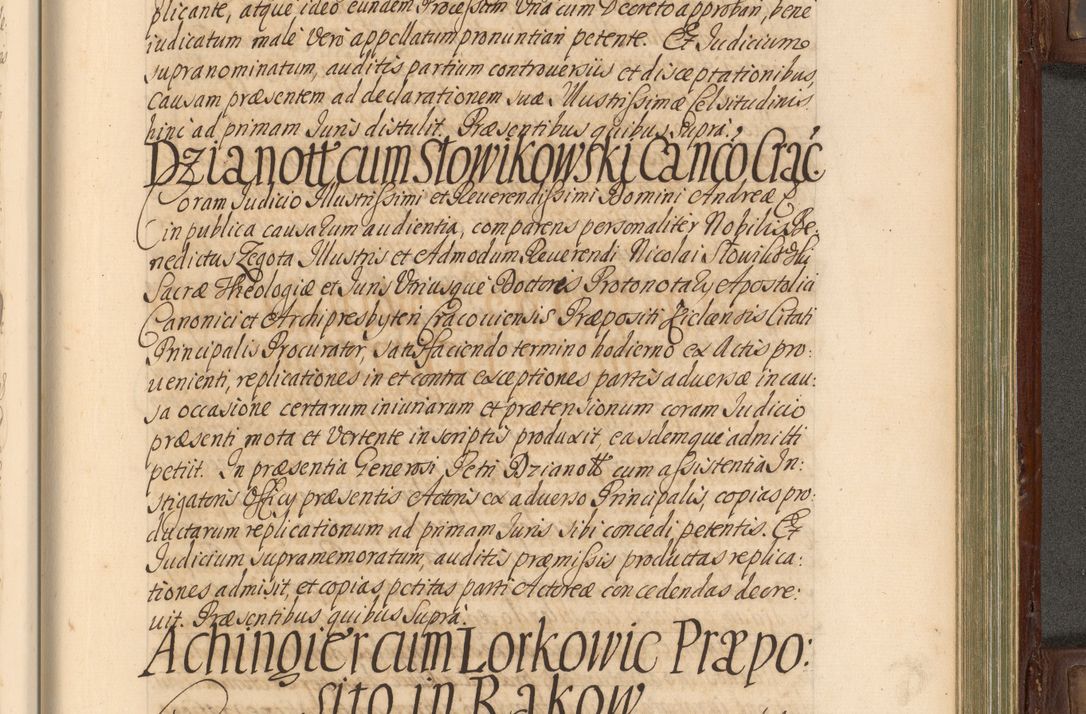 plicante, atque ideo eundem Processum Una cum Decreto approbari, bene
iudicatum male Vero appellatum pronuntiari petente. Et Judicium
supranominatum, auditis partium controversiis et disceptationibus,
causam præsentem ad declarationem suæ Illustrissimæ Celsitudinis
hinc ad primam Juris distulit. Præsentibus quibus Supra.
Dzianott cum Słowikowski Canco. Crac.
Coram Judicio Illustrissimi et Reverendissimi Domini Andreæ E.
in publica causarum audientia, comparens personaliter Nobilis Be:
nedictus Zegota Illustris et Admodum Reverendi Nicolai Słowikowski
Sacræ Theologiæ et Juris Utriusque Doctoris Protonotarij Apostolici
Canonici et Archipresbyteri Cracoviensis Præpositi Zielcensis Citati
Principalis Procurator, satisfaciendo termino hodierno ex Actis pro:
venienti, replicationes in et contra exceptiones partis adversæ in cau:
sa occasione certarum iniuriarum et prætensionum coram Judicio
præsenti mota et Vertente in scriptis produxit, easdemque admitti
petiit. In præsentia Generosi Petri Dzianott cum assistentia In:
stigatoris Officij præsentis Actoris ex adverso Principalis, copias pro:
ductarum replicationum ad primam Juris sibi concedi petentis. Et
Judicium supramemoratum, auditis præmissis productas replica:
tiones admisit, et copias petitas parti Actoreæ concedendas decre:
vit. Præsentibus quibus Supra.
Achingier cum Lorkowic Præpo:
sito in Rakow